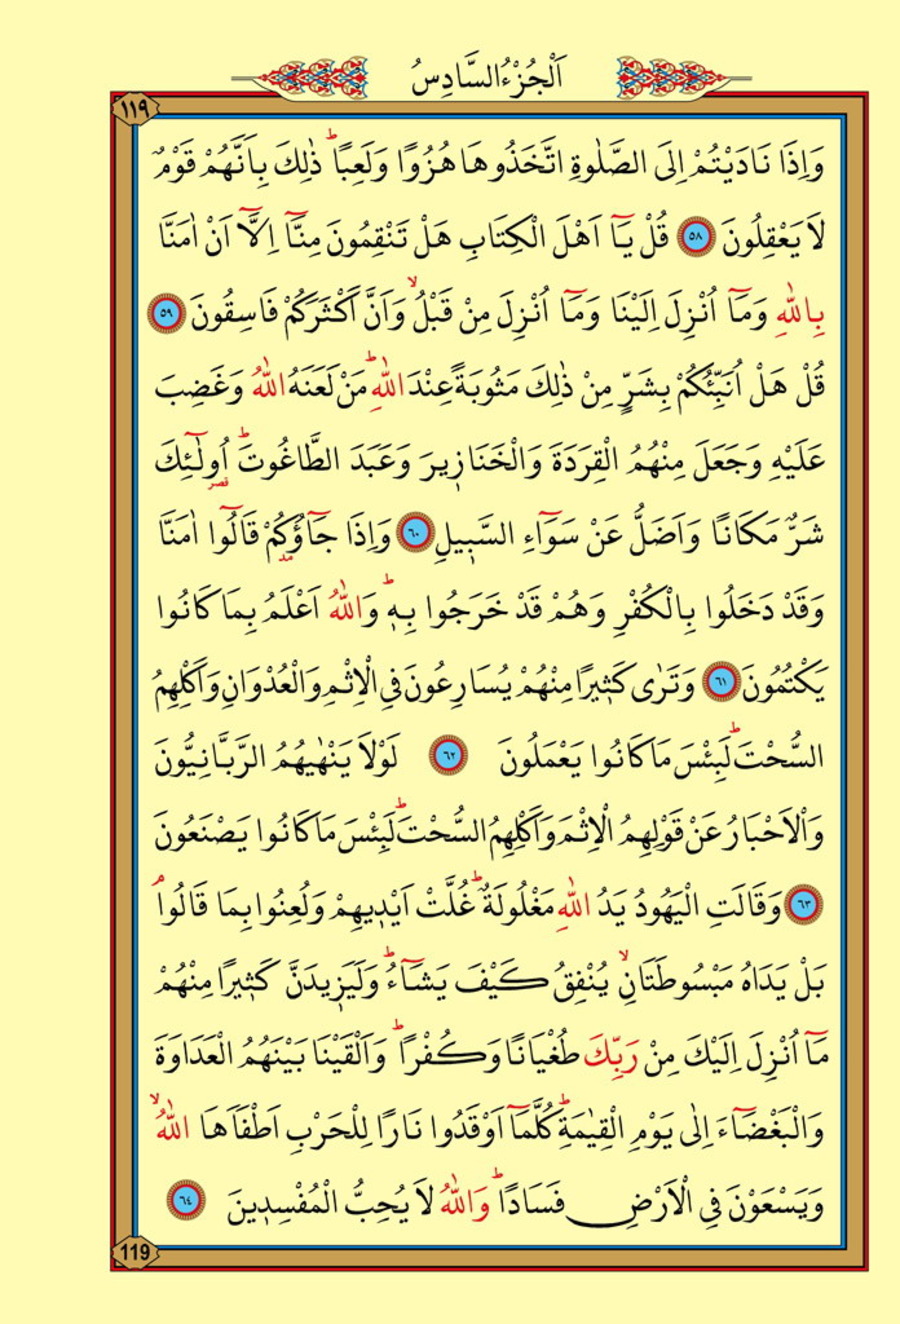 اَلْجُزْءُ السَّادِسُ
١١٩
وَاِذَا نَادَيْتُمْ اِلَى الصَّلٰوةِ اتَّخَذُوهَا هُزُوًا وَلَعِبًاۜ ذٰلِكَ بِاَنَّهُمْ قَوْمٌ
لَا يَعْقِلُونَ ٥٨ قُلْ يَٓا اَهْلَ الْكِتَابِ هَلْ تَنْقِمُونَ مِنَّٓا اِلَّٓا اَنْ اٰمَنَّا
بِاللّٰهِ وَمَٓا اُنْزِلَ اِلَيْنَا وَمَٓا اُنْزِلَ مِنْ قَبْلُۙ وَاَنَّ اَكْثَرَكُمْ فَاسِقُونَ ٥٩
قُلْ هَلْ اُنَبِّئُكُمْ بِشَرٍّ مِنْ ذٰلِكَ مَثُوبَةً عِنْدَ اللّٰهِۜ مَنْ لَعَنَهُ اللّٰهُ وَغَضِبَ
عَلَيْهِ وَجَعَلَ مِنْهُمُ الْقِرَدَةَ وَالْخَنَازٖيرَ وَعَبَدَ الطَّاغُوتَۜ اُو۬لٰٓئِكَ
قصر
شَرٌّ مَكَانًا وَاَضَلُّ عَنْ سَوَٓاءِ السَّبٖيلِ ٦٠ وَاِذَا جَٓاؤُ۫كُمْ قَالُٓوا اٰمَنَّا
مد
وَقَدْ دَخَلُوا بِالْكُفْرِ وَهُمْ قَدْ خَرَجُوا بِهٖۜ وَاللّٰهُ اَعْلَمُ بِمَا كَانُوا
يَكْتُمُونَ ٦١ وَتَرٰى كَثٖيرًا مِنْهُمْ يُسَارِعُونَ فِي الْاِثْمِ وَالْعُدْوَانِ وَاَكْلِهِمُ
السُّحْتَۜ لَبِئْسَ مَا كَانُوا يَعْمَلُونَ ٦٢ لَوْلَا يَنْهٰيهُمُ الرَّبَّانِيُّونَ
وَالْاَحْبَارُ عَنْ قَوْلِهِمُ الْاِثْمَ وَاَكْلِهِمُ السُّحْتَۜ لَبِئْسَ مَا كَانُوا يَصْنَعُونَ
٦٣ وَقَالَتِ الْيَهُودُ يَدُ اللّٰهِ مَغْلُولَةٌۜ غُلَّتْ اَيْدٖيهِمْ وَلُعِنُوا بِمَا قَالُواۢ
بَلْ يَدَاهُ مَبْسُوطَتَانِۙ يُنْفِقُ كَيْفَ يَشَٓاءُۜ وَلَيَزٖيدَنَّ كَثٖيرًا مِنْهُمْ
مَٓا اُنْزِلَ اِلَيْكَ مِنْ رَبِّكَ طُغْيَانًا وَكُفْرًاۜ وَاَلْقَيْنَا بَيْنَهُمُ الْعَدَاوَةَ
وَالْبَغْضَٓاءَ اِلٰى يَوْمِ الْقِيٰمَةِۜ كُلَّمَٓا اَوْقَدُوا نَارًا لِلْحَرْبِ اَطْفَاَهَا اللّٰهُۙ
وَيَسْعَوْنَ فِي الْاَرْضِ فَسَادًاۜ وَاللّٰهُ لَا يُحِبُّ الْمُفْسِدٖينَ ٦٤
119